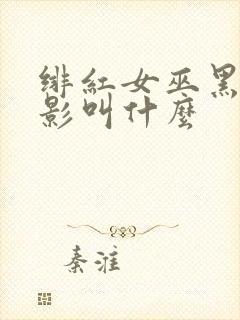 緋紅女巫黑
影叫什麼
秦淮